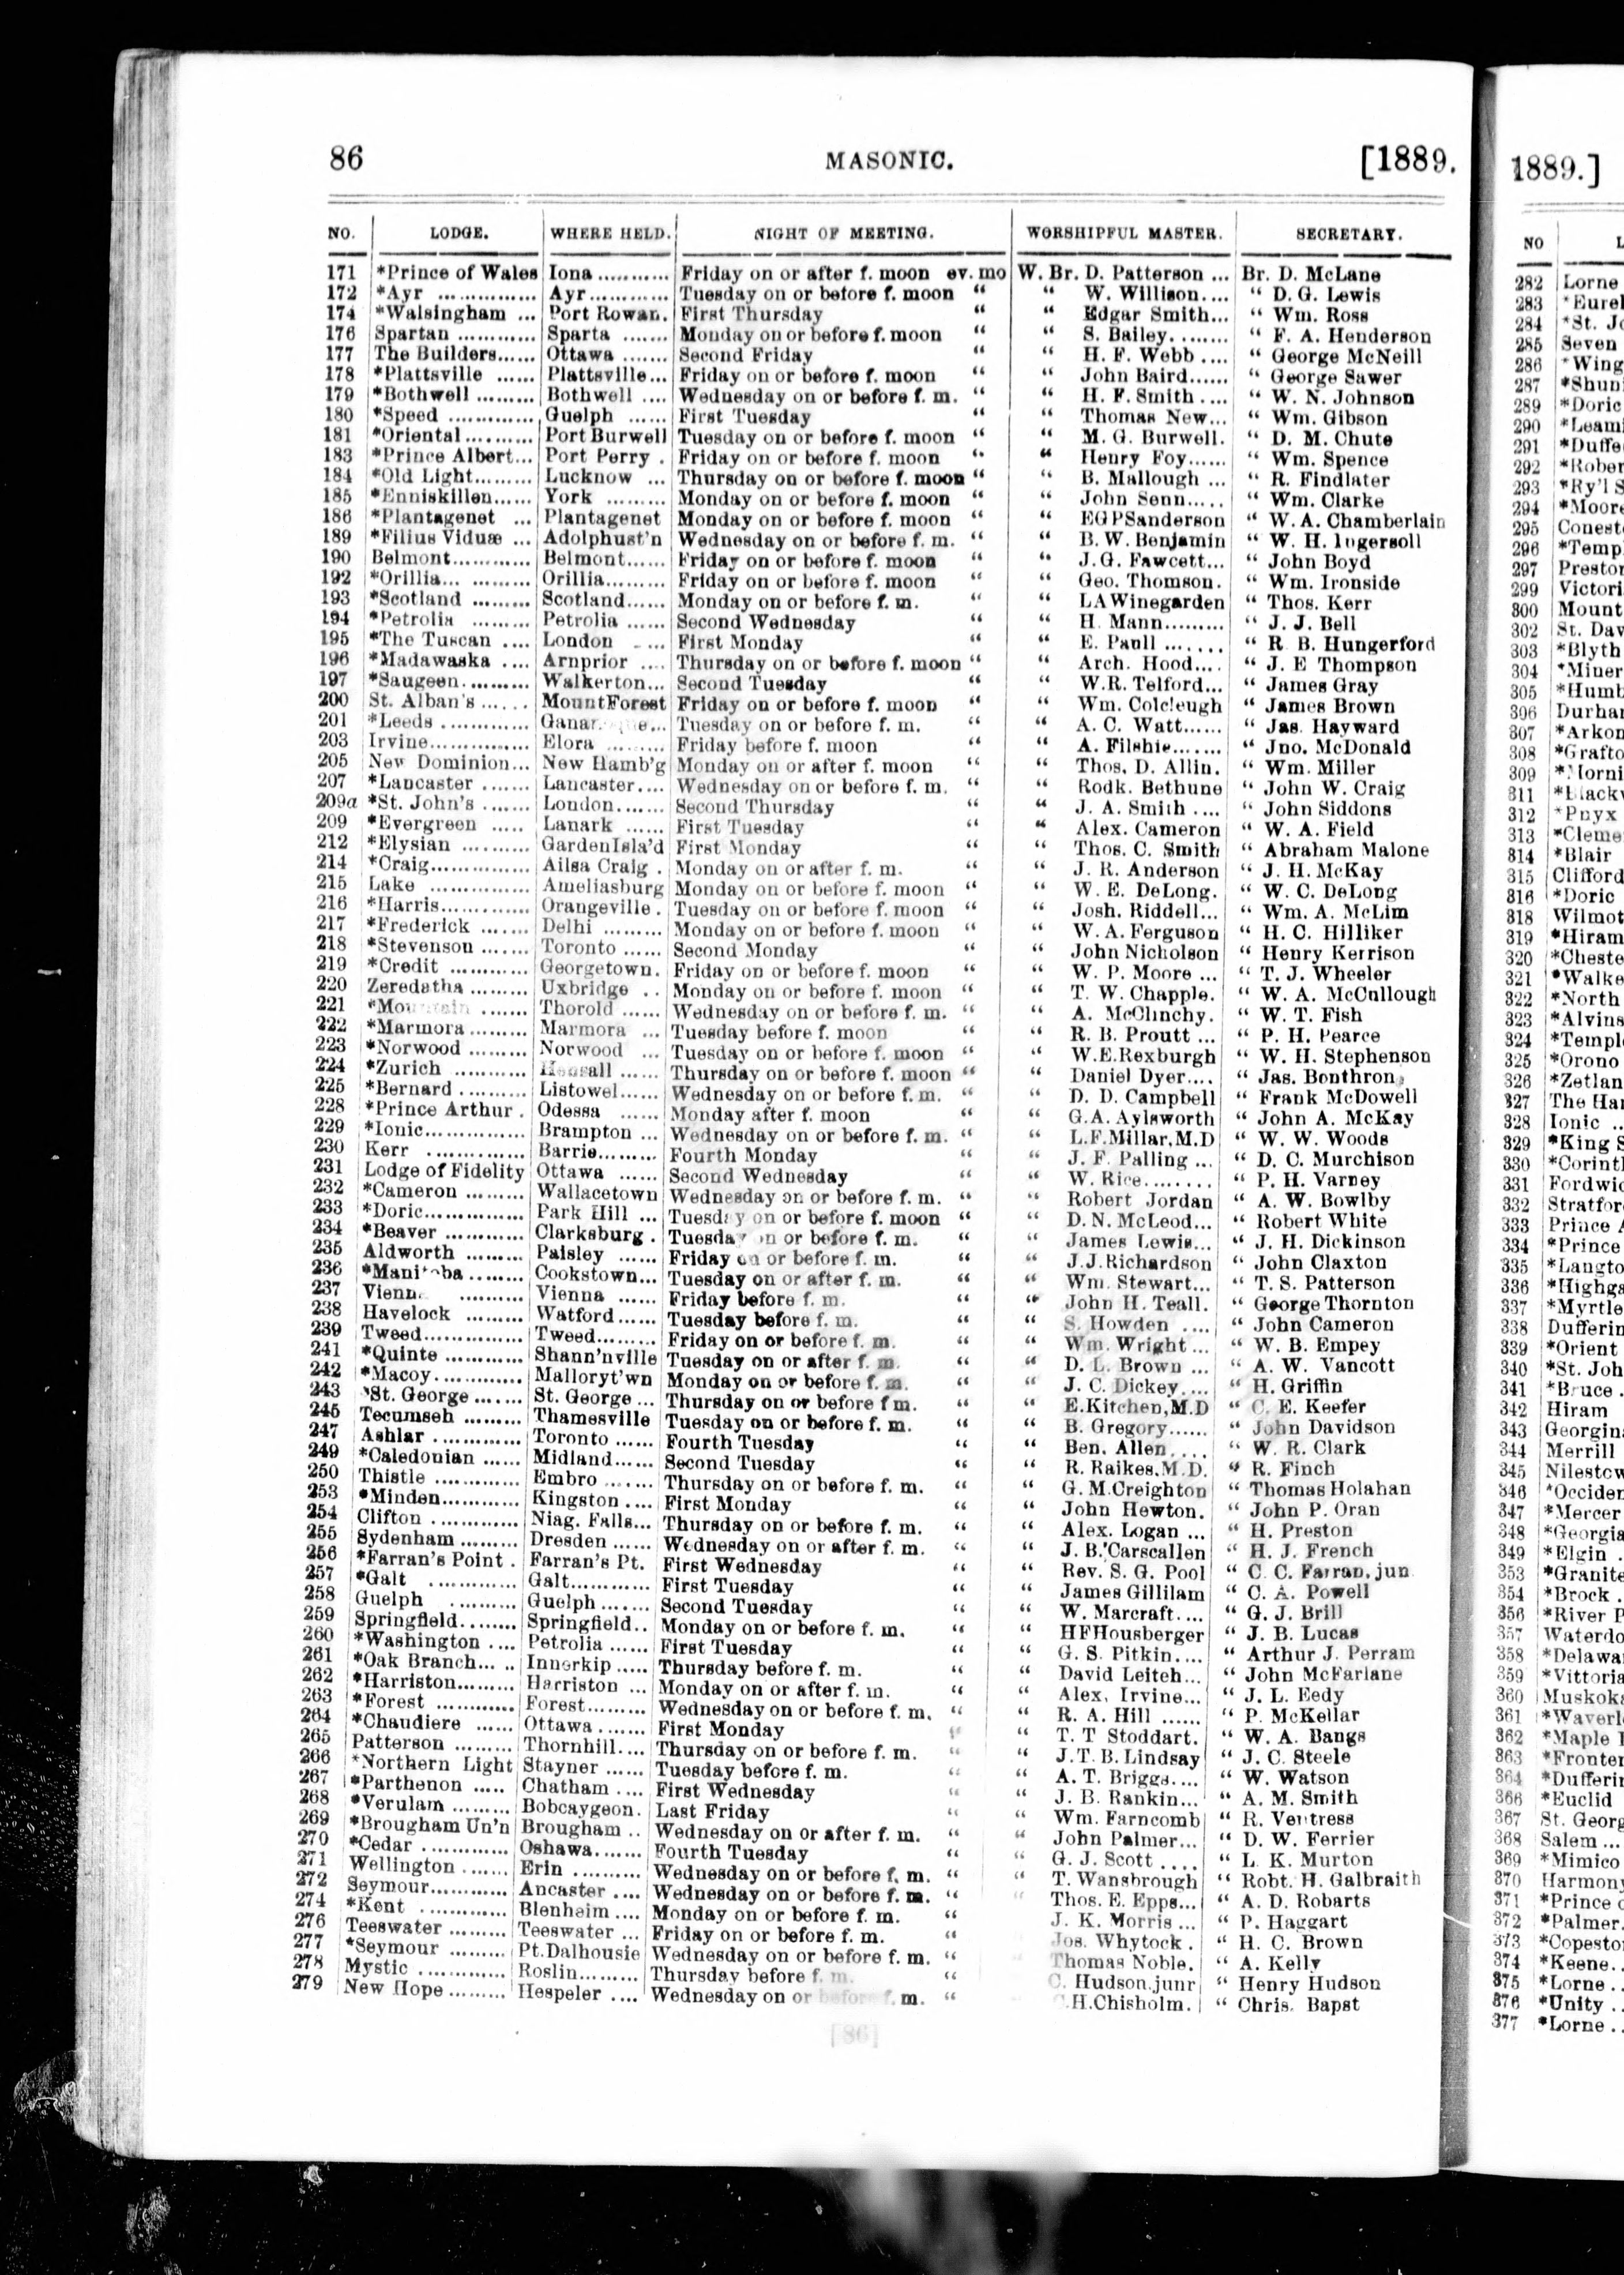 86 MASONIC. [1889.
NO. LODGE. WHERE HELD. NIGHT OF MEETING. WORSHIPFUL MASTER. SECRETARY.
171 *Prince of Wales Iona ........... Friday on or after f. moon ev. mo W. Br. D. Patterson ... Br. D. McLane
172 *Ayr ............... Ayr ............ Tuesday on or before f. moon “ “ W. Willison.... “ D. G. Lewis
174 *Walsingham ... Port Rowan. First Thursday “ “ Edgar Smith... “ Wm. Ross
176 Spartan ............ Sparta ....... Monday on or before f. moon “ “ S. Bailey......... “ F. A. Henderson
177 The Builders...... Ottawa ....... Second Friday “ “ H. F. Webb .... “ George McNeill
178 *Plattsville ...... Plattsville... Friday on or before f. moon “ “ John Baird...... “ George Sawer
179 *Bothwell ......... Bothwell .... Wednesday on or before f. m. “ “ H. F. Smith .... “ W. N. Johnson
180 *Speed ............. Guelph ...... First Tuesday “ “ Thomas New... “ Wm. Gibson
181 *Oriental .......... Port Burwell Tuesday on or before f. moon “ “ M. G. Burwell. “ D. M. Chute
183 *Prince Albert... Port Perry . Friday on or before f. moon “ “ Henry Foy...... “ Wm. Spence
184 *Old Light......... Lucknow ... Thursday on or before f. moon “ “ B. Mallough ... “ R. Findlater
185 *Enniskillen...... York ......... Monday on or before f. moon “ “ John Senn..... “ Wm. Clarke
186 *Plantagenet ... Plantagenet Monday on or before f. moon “ “ EGPSanderson “ W. A. Chamberlain
189 *Filius Viduæ ... Adolphust’n Wednesday on or before f. m. “ “ B. W. Benjamin “ W. H. Ingersoll
190 Belmont............ Belmont...... Friday on or before f. moon “ “ J. G. Fawcett... “ John Boyd
192 *Orillia... ......... Orillia......... Friday on or before f. moon “ “ Geo. Thomson. “ Wm. Ironside
193 *Scotland ......... Scotland...... Monday on or before f. m. “ “ LAWinegarden “ Thos. Kerr
194 *Petrolia ......... Petrolia ...... Second Wednesday “ “ H. Mann......... “ J. J. Bell
195 *The Tuscan .... London .... First Monday “ “ E. Paull ....... “ R. B. Hungerford
196 *Madawaska .... Arnprior .... Thursday on or before f. moon “ “ Arch. Hood.... “ J. E Thompson
197 *Saugeen.......... Walkerton... Second Tuesday “ “ W.R. Telford... “ James Gray
200 St. Alban’s ...... MountForest Friday on or before f. moon “ “ Wm. Colcleugh “ James Brown
201 *Leeds ............. Tuesday on or before f. m. “ “ A. C. Watt...... “ Jas. Hayward
203 Irvine............... Elora ......... Friday before f. moon “ “ A. Filshie....... “ Jno. McDonald
205 New Dominion... New Hamb’g Monday on or after f. moon “ “ Thos. D. Allin. “ Wm. Miller
207 *Lancaster ....... Lancaster.... Wednesday on or before f. m. “ “ Rodk. Bethune “ John W. Craig
209a *St. John’s ....... London....... Second Thursday “ “ J. A. Smith .... “ John Siddons
209 *Evergreen ..... Lanark ...... First Tuesday “ “ Alex. Cameron “ W. A. Field
212 *Elysian .......... GardenIsla’d First Monday “ “ Thos. C. Smith “ Abraham Malone
214 *Craig............... Ailsa Craig . Monday on or after f. m. “ “ J. R. Anderson “ J. H. McKay
215 Lake ............... Ameliasburg Monday on or before f. moon “ “ W. E. DeLong. “ W. C. DeLong
216 *Harris............. Orangeville . Tuesday on or before f. moon “ “ Josh. Riddell... “ Wm. A. McLim
217 *Frederick ....... Delhi ......... Monday on or before f. moon “ “ W. A. Ferguson “ H. C. Hilliker
218 *Stevenson ....... Toronto ...... Second Monday “ “ John Nicholson “ Henry Kerrison
219 *Credit ............ Georgetown. Friday on or before f. moon “ “ W. P. Moore ... “ T. J. Wheeler
220 Zeredatha ......... Uxbridge .. Monday on or before f. moon “ “ T. W. Chapple. “ W. A. McCullough
221 Thorold ...... Wednesday on or before f. m. “ “ A. McClinchy. “ W. T. Fish
222 *Marmora ......... Marmora ... Tuesday before f. moon “ “ R. B. Proutt ... “ P. H. Pearce
223 *Norwood ......... Norwood ... Tuesday on or before f. moon “ “ W.E.Rexburgh “ W. H. Stephenson
224 *Zurich ........... Hensall ...... Thursday on or before f. moon “ “ Daniel Dyer.... “ Jas. Bonthron
225 *Bernard .......... Listowel...... Wednesday on or before f. m. “ “ D. D. Campbell “ Frank McDowell
228 *Prince Arthur . Odessa ...... Monday after f. moon “ “ G.A. Aylsworth “ John A. McKay
229 *Ionic............... Brampton ... Wednesday on or before f. m. “ “ L.F.Millar,M.D “ W. W. Woods
230 Kerr ............... Barrie......... Fourth Monday “ “ J. F. Palling ... “ D. C. Murchison
231 Lodge of Fidelity Ottawa ...... Second Wednesday “ “ W. Rice........ “ P. H. Varney
232 *Cameron ......... Wallacetown Wednesday on or before f. m. “ “ Robert Jordan “ A. W. Bowlby
233 *Doric............... Park Hill ... Tuesday on or before f. moon “ “ D. N. McLeod... “ Robert White
234 *Beaver ............ Clarksburg . Tuesday on or before f. m. “ “ James Lewis... “ J. H. Dickinson
235 Aldworth ......... Paisley ...... Friday on or before f. m. “ “ J.J.Richardson “ John Claxton
236 *Manitoba ......... Cookstown... Tuesday on or after f. m. “ “ Wm. Stewart... “ T. S. Patterson
237 Vienna .......... Vienna ...... Friday before f. m. “ “ John H. Teall. “ George Thornton
238 Havelock ......... Watford...... Tuesday before f. m. “ “ S. Howden .... “ John Cameron
239 Tweed............... Tweed......... Friday on or before f. m. “ “ Wm. Wright ... “ W. B. Empey
241 *Quinte ............ Shann’nville Tuesday on or after f. m. “ “ D. L. Brown ... “ A. W. Vancott
242 *Macoy............. Malloryt’wn Monday on or before f. m. “ “ J. C. Dickey.... “ H. Griffin
243 *St. George ....... St. George ... Thursday on or before f m. “ “ E.Kitchen,M.D “ C. E. Keefer
245 Tecumseh ......... Thamesville Tuesday on or before f. m. “ “ B. Gregory...... “ John Davidson
247 Ashlar ............. Toronto ...... Fourth Tuesday “ “ Ben. Allen .... “ W. R. Clark
249 *Caledonian ...... Midland...... Second Tuesday “ “ R. Raikes,M.D. “ R. Finch
250 Thistle ............. Embro ....... Thursday on or before f. m. “ “ G. M.Creighton “ Thomas Holahan
253 *Minden............ Kingston .... First Monday “ “ John Hewton. “ John P. Oran
254 Clifton ............. Niag. Falls... Thursday on or before f. m. “ “ Alex. Logan ... “ H. Preston
255 Sydenham ......... Dresden ...... Wednesday on or after f. m. “ “ J. B. Carscallen “ H. J. French
256 *Farran’s Point . Farran’s Pt. First Wednesday “ “ Rev. S. G. Pool “ C. C. Farran, jun
257 *Galt ............. Galt............ First Tuesday “ “ James Gillilam “ C. A. Powell
258 Guelph .......... Guelph ....... Second Tuesday “ “ W. Marcraft.... “ G. J. Brill
259 Springfield......... Springfield.. Monday on or before f. m. “ “ HFHousberger “ J. B. Lucas
260 *Washington .... Petrolia ...... First Tuesday “ “ G. S. Pitkin.... “ Arthur J. Perram
261 *Oak Branch... .. Innerkip ..... Thursday before f. m. “ “ David Leitch... “ John McFarlane
262 *Harriston......... Harriston ... Monday on or after f. m. “ “ Alex. Irvine... “ J. L. Eedy
263 *Forest ............ Forest......... Wednesday on or before f. m. “ “ R. A. Hill ...... “ P. McKellar
264 *Chaudiere ...... Ottawa ....... First Monday “ “ T. T Stoddart. “ W. A. Bangs
265 Patterson ......... Thornhill.... Thursday on or before f. m. “ “ J.T. B. Lindsay “ J. C. Steele
266 *Northern Light Stayner ...... Tuesday before f. m. “ “ A. T. Briggs.... “ W. Watson
267 *Parthenon ..... Chatham .... First Wednesday “ “ J. B. Rankin... “ A. M. Smith
268 *Verulam ......... Bobcaygeon. Last Friday “ “ Wm. Farncomb “ R. Ventress
269 *Brougham Un’n Brougham .. Wednesday on or after f. m. “ “ John Palmer... “ D. W. Ferrier
270 *Cedar ............. Oshawa....... Fourth Tuesday “ “ G. J. Scott .... “ L. K. Murton
271 Wellington ....... Erin .......... Wednesday on or before f. m. “ “ T. Wansbrough “ Robt. H. Galbraith
272 Seymour............ Ancaster .... Wednesday on or before f. m. “ “ Thos. E. Epps... “ A. D. Robarts
274 *Kent ............. Blenheim .... Monday on or before f. m. “ J. K. Morris ... “ P. Haggart
276 Teeswater ......... Teeswater ... Friday on or before f. m. “ Jos. Whytock . “ H. C. Brown
277 *Seymour ......... Pt.Dalhousie Wednesday on or before f. m. “ Thomas Noble. “ A. Kelly
278 Mystic ............. Roslin......... Thursday before f. m. “ C. Hudson,junr “ Henry Hudson
279 New Hope ......... Hespeler .... Wednesday on or before f. m. “ H.Chisholm. “ Chris. Bapst
[86]
1889.]
NO L
282 Lorne
283 *Eurek
284 *St. Jo
285 Seven
286 *Wing
287 *Shuni
289 *Doric
290 *Leami
291 *Duffe
292 *Rober
293 *Ry’l S
294 *Moore
295 Conest
296 *Temp
297 Preston
299 Victori
300 Mount
302 St. Dav
303 *Blyth
304 *Miner
305 *Humb
306 Durhar
307 *Arkon
308 *Grafto
309 *Morni
311 *Blackw
312 *Pnyx
313 *Cleme
314 *Blair
315 Clifford
316 *Doric
318 Wilmot
319 *Hiram
320 *Cheste
321 *Walke
322 *North
323 *Alvins
324 *Templ
325 *Orono
326 *Zetlan
327 The Har
328 Ionic ..
329 *King S
330 *Corintl
331 Fordwic
332 Stratfor
333 Prince A
334 *Prince
335 *Langto
336 *Highga
337 *Myrtle
338 Dufferin
339 *Orient
340 *St. Joh
341 *Bruce .
342 Hiram
343 Georgina
344 Merrill
345 Nilestow
346 *Occiden
347 *Mercer
348 *Georgia
349 *Elgin .
353 *Granite
354 *Brock .
356 *River P
357 Waterdo
358 *Delawar
359 *Vittoria
360 Muskoka
361 *Waverl
362 *Maple
363 *Fronten
364 *Dufferin
366 *Euclid
367 St. Georg
368 Salem ...
369 *Mimico
370 Harmony
371 *Prince o
372 *Palmer.
373 *Copeston
374 *Keene..
375 *Lorne ..
376 *Unity ..
377 *Lorne ..